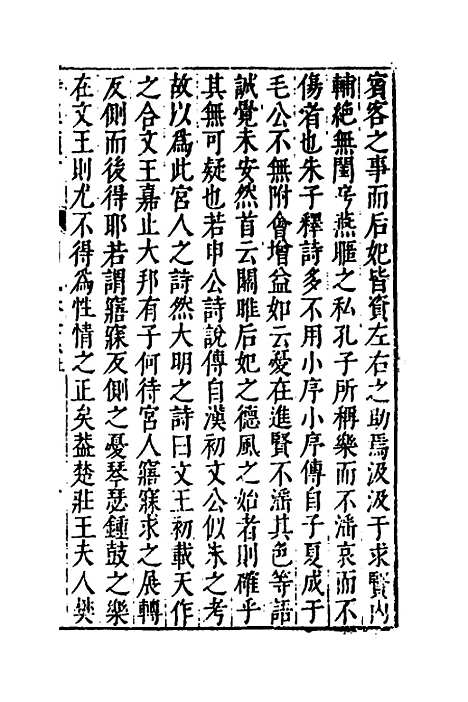 賓客之事而后妃皆資左右之助焉汲汲于求賢內
輔絶無閨兮燕昵之私孔子所稱樂而不淫哀而不
傷者也朱子釋詩多不用小序小序傳自子夏成于
毛公不無附會增益如云憂在進賢不淫其色等語
誠覺未安然首云關雎后妃之德風之始者則確乎
其無可疑也若申公詩說傳自漢初文公似未之考
故以爲此宮人之詩然大明之詩曰文王初載天作
之合文王嘉止大邦有子何待宮人寤寐求之展轉
反側而後得耶若謂寤寐反側之憂琴瑟鍾鼓之樂
在文王則尤不得爲性情之正矣葢楚莊王夫人樊